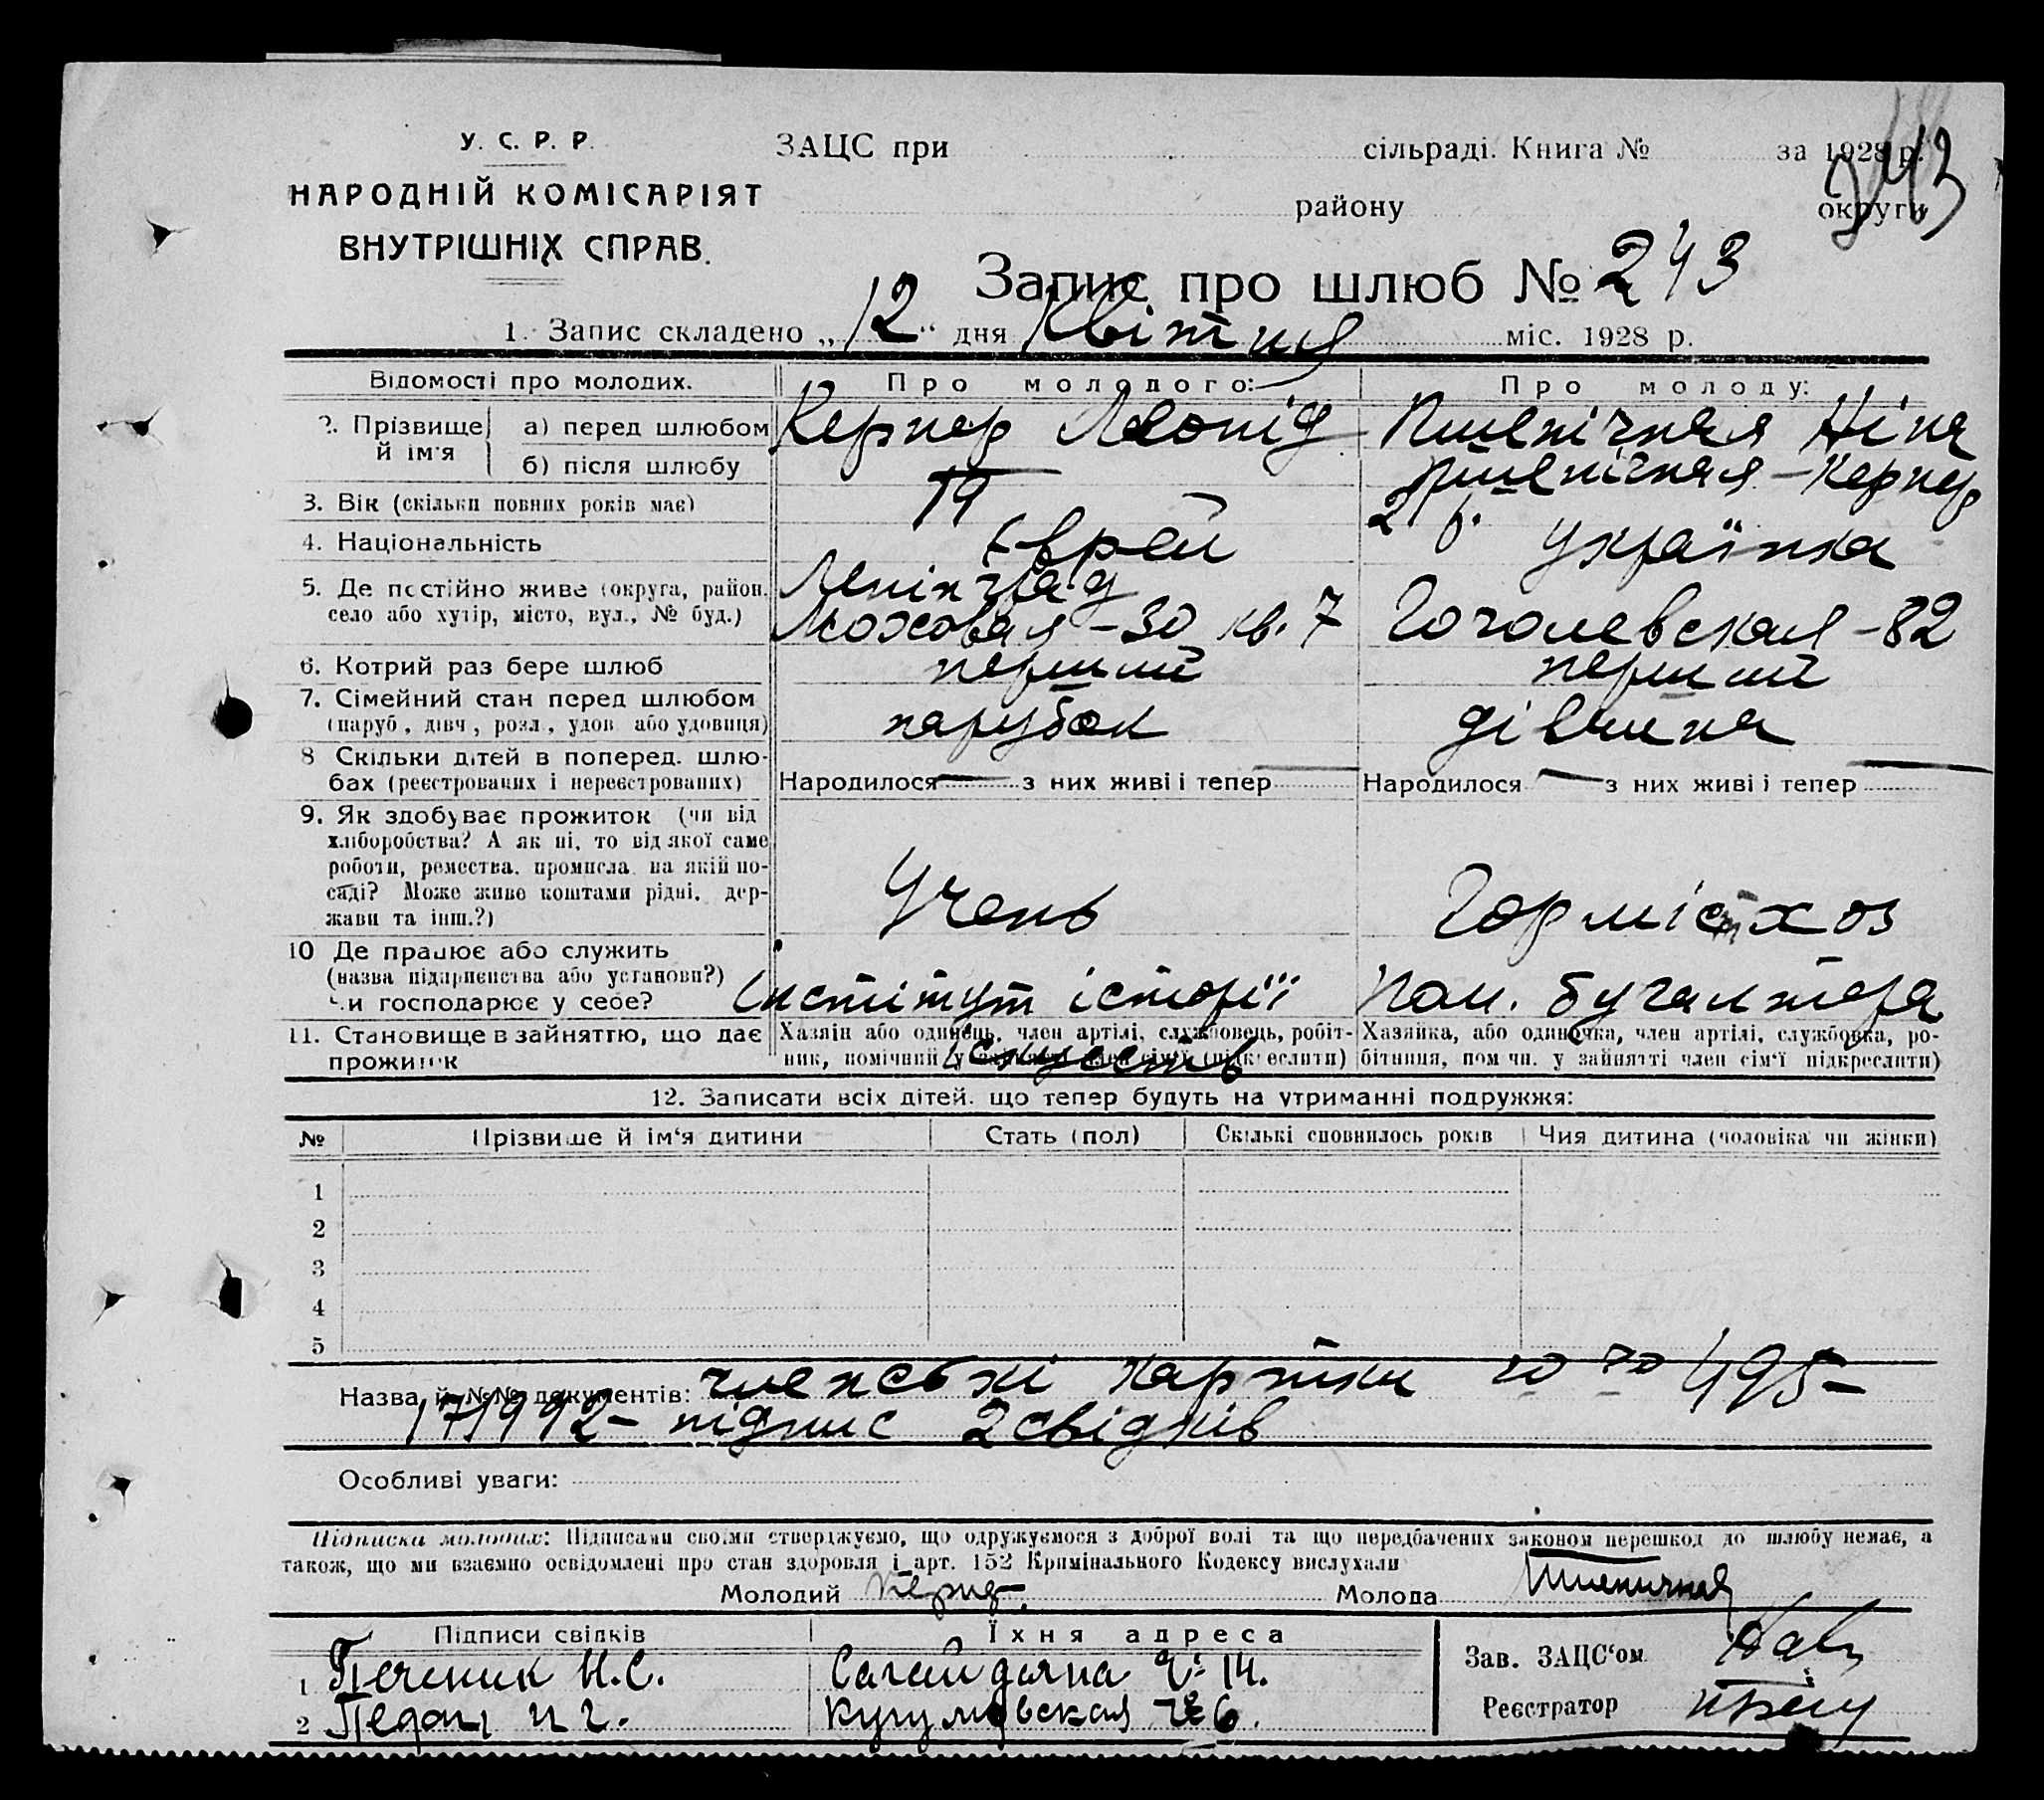 У. С. Р. Р.
НАРОДНІЙ КОМІСАРІЯТ
ВНУТРІШНІХ СПРАВ.
ЗАЦС при сільраді. Книга № за 1928 р.
243
району округи
Запис про шлюб № 243
1. Запис складено „12“ дня Квітня міс. 1928 р.
Відомості про молодих. Про молодого: Про молоду:
2. Прізвище й ім'я а) перед шлюбом Кернер Леонід Пшенічная Ніна
б) після шлюбу Пшенічная-Кернер
3. Вік (скільки повних років має) 19 21 р.
4. Національність Єврей Українка
5. Де постійно живе (округа, район, село або хутір, місто, вул., № буд.) Ленінград Моховая-30 кв. 7 Гоголевская-82
6. Котрий раз бере шлюб перший перший
7. Сімейний стан перед шлюбом (паруб., дівч., розл., удов. або удовиця) парубок дівчина
8 Скільки дітей в поперед. шлюбах (реєстрованих і нереєстрованих) Народилося — з них живі і тепер — Народилося — з них живі і тепер —
9. Як здобуває прожиток (чи від хліборобства? А як ні, то від якої саме роботи, ремества, промисла, на якій посаді? Може живе коштами рідні, держави та інш.?) Учень Гормістхоз
10 Де працює або служить (назва підприємства або установи?) Чи господарює у себе? Інстітут історії іскусств Пом. бугалтера
11. Становище в зайняттю, що дає прожиток Хазяїн або одинець, член артілі, службовець, робітник, помічний у зайнятті член сім'ї (підкреслити) Хазяйка, або одиночка, член артілі, службовка, робітниця, помічн. у зайнятті член сім'ї підкреслити)
12. Записати всіх дітей, що тепер будуть на утриманні подружжя:
№ Прізвище й ім'я дитини Стать (пол) Скількі сповнилось років Чия дитина (чоловіка чи жінки)
1
2
3
4
5
Назва й №№ документів: членські картки 495-
171992- підпис 2 свідків
Особливі уваги:
Підписка молодих: Підписами своїми стверджуємо, що одружуємося з доброї волі та що передбачених законом перешкод до шлюбу немає, а
також, що ми взаємно освідомлені про стан здоровля і арт. 152 Кримінального Кодексу вислухали
Молодий Кернер Молода Пшеничная
Підписи свідків Їхня адреса Зав. ЗАЦС'ом
1 Печеник Н.С. Сагайдачна № 14.
Реєстратор
2 Педан И Г. № 6.